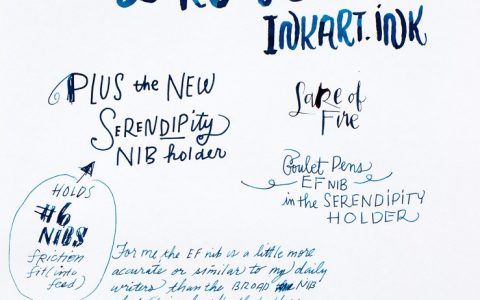 INKART.INK
PLUS the NEW
SERENDIPity
NIB holder
HOLDS
#6
NIBS
friction
fit (into
feed)
Lake of
Fire
Goulet Pens
EF NIB
in the SERENDIPITY
HOLDER
For me the EF nib is a little more
accurate or similar to my daily
writers than the BROAD NIB